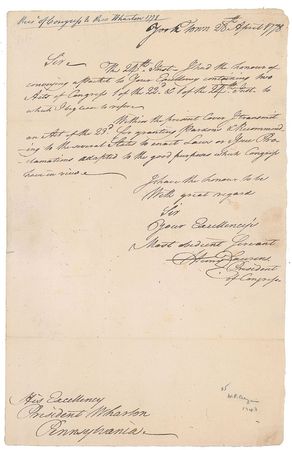 Presᵗ of Congress to Pres Wharton 1778
York Town 26th April 1778
Sir
The 24th Inst. I had the honour of
conveying a Packet to Your Excellency containing two
Acts of Congress 1 of the 22d. & 1 of the 24th Inst. to
which I beg leave to refer.
Within the present Cover I transmit
an Act of the 23d for granting Pardons & Recommend
ing to the several States to enact Laws or Issue Pro
clamations adapted to the good purposes which Congress
have in view.
I have the honour to be
With great regard
Sir
Your Excellency's
Most obedient Servant
Henry Laurens
President
of Congress
His Excellency
President Wharton
Pennsylvania.